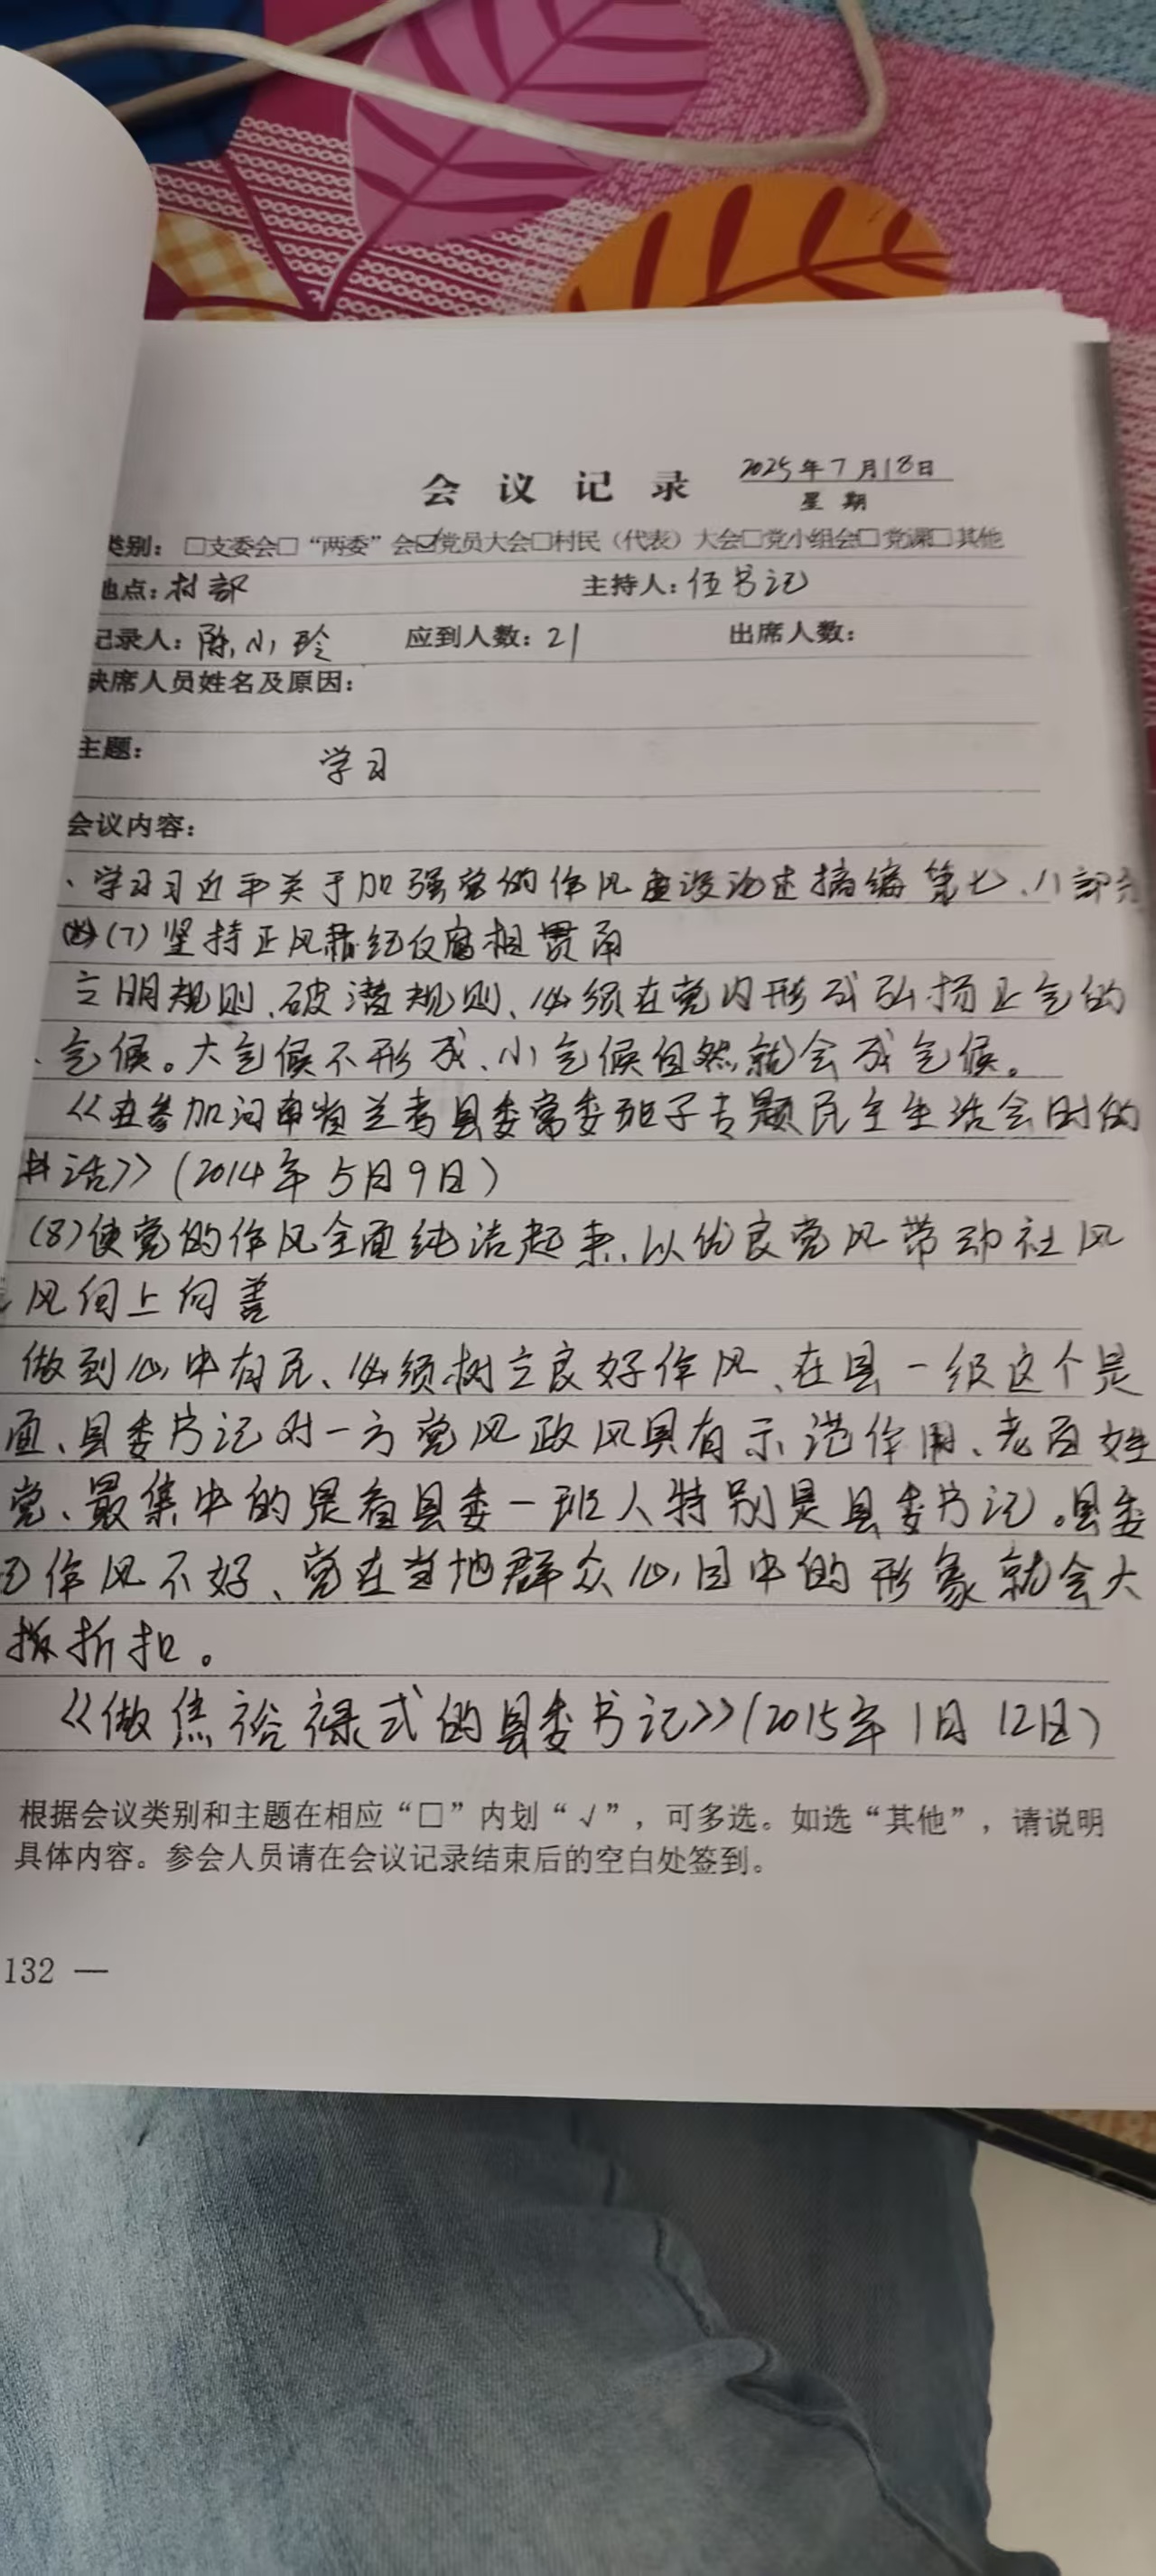 会议记录 2025年7月18日
星期
类别：□支委会□“两委”会☑党员大会□村民（代表）大会□党小组会□党课□其他
地点：村部 主持人：伍书记
记录人：陈小玲 应到人数：21 出席人数：
缺席人员姓名及原因：
主题： 学习
会议内容：
、学习习近平关于加强党的作风建设论述摘编第七、八部分
(7)坚持正风肃纪反腐相贯通
立明规则、破潜规则、必须在党内形成弘扬正气的
、气候。大气候不形成、小气候自然就会成气候。
《在参加河南省兰考县委常委班子专题民主生活会时的
讲话》（2014年5月9日）
(8)使党的作风全面纯洁起来、以优良党风带动社风
风向上向善
做到心中有民、必须树立良好作风、在县一级这个是
面、县委书记对一方党风政风具有示范作用、老百姓
党、最集中的是看县委一班人特别是县委书记。县委
记作风不好、党在当地群众心目中的形象就会大
折扣。
《做焦裕禄式的县委书记》（2015年1月12日）
根据会议类别和主题在相应“□”内划“√”，可多选。如选“其他”，请说明
具体内容。参会人员请在会议记录结束后的空白处签到。
132 —